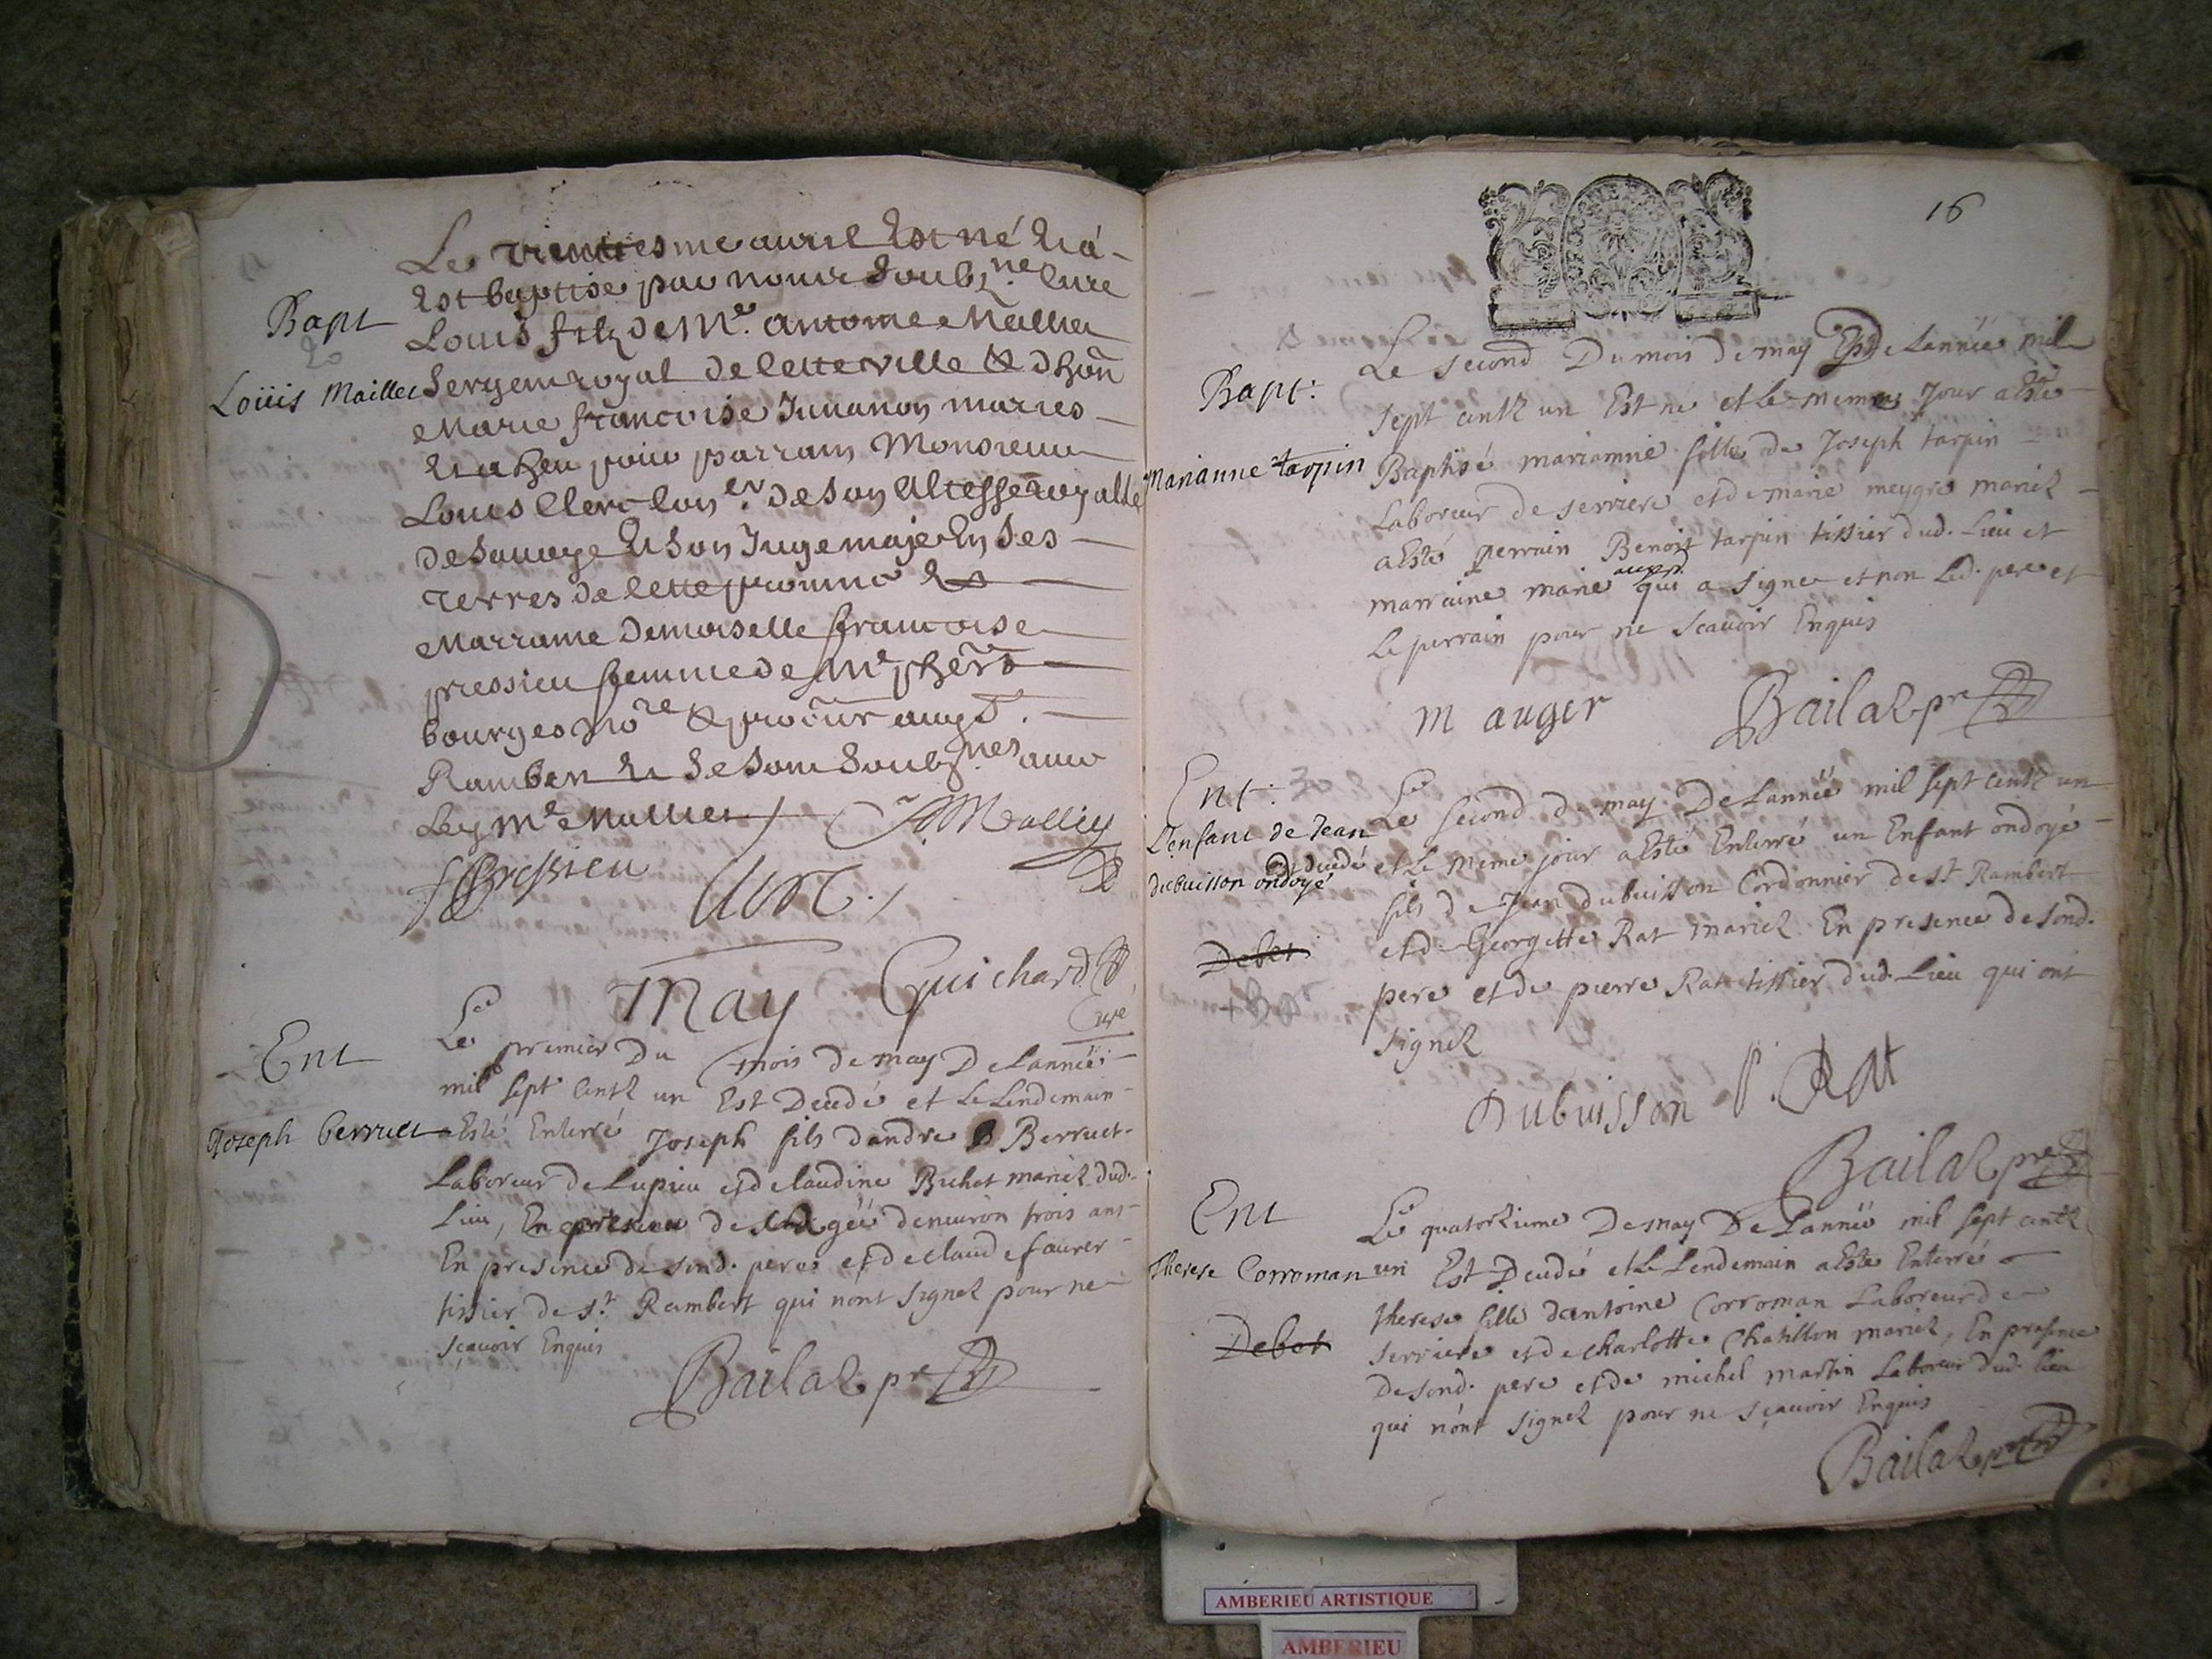 Le trentiesme auril Est né Et a
Est baptise par nous Soubz.ne Cure
Bapt
Louis filz de Me. antoine Mallier
Loüis Maillet
Sergent royal de cette ville & dhon
Marie francoise Junanon maries
Et a heu pour parrain Monsieur
Louis Clerc Con.er de Son Altesse royalle
de Sauoye Et Son Juge maje En Ses
Terres de cette prouince Et
Marraine Demoiselle francoise
pressieu femme de Me
bourges no.re & procur aud.
Rambert Et Se Sont Soubz.nes auec
Led Me Mallier
Mallier
f Pressieu
Clerc
Guichard
Cure
May
Ent
Le premier Du mois de may De Lannéé
mil sept Centz un Est Decedé et Le Lendemain
Joseph berruet
a Esté Enterré Joseph fils dandre Berruet
Laboreur de Lupieu et de claudine Bichet mariez dud.
Lieu, En presence de Aagéé denuiron trois ans
En presence de sond. pere et de claude faurer
tissier de st. Rambert qui nont signez pour ne
sçauoir Enquis
Bailaz pr
16
Bapt:
Le second Du mois de may De Lannéé mil
sept centz un Est ne et Le meme Jour a Esté
Marianne tarpin
Baptisé marianne fille de Joseph tarpin
Laboreur de serriere et de marie meygre mariez
a Esté perrain Benoist tarpin tissier dud. Lieu et
marraine marie auger qui a signe et non Led. pere et
Le perrain pour ne Scauoir Enquis
m auger
Bailaz pr
Ent: 30
Le second de may De Lannéé mil sept centz un
L'enfant de Jean
decedé et Le meme jour a Esté Enterré un Enfant ondoyé
dubuisson ondoyé
fils de Jean dubuisson Cordonnier de st Rambert
Debet
et de Georgette Rat mariez En presence de sond.
pere et de pierre Rat tissier dud. Lieu qui ont
signez
Dubuisson P. Rat
Bailaz pr
Ent
Le quatorzieme De may De Lannéé mil sept centz
Therese Corroman
un Est Decedé et Le Lendemain a Esté Enterré
therese fille dantoine Corroman Laboreur de
Debet
serriere et de charlotte Chatillon mariez, En presence
de sond. pere et de michel martin Laboreur dud. lieu
qui nont signez pour ne sçauoir Enquis
Bailaz pr
AMBERIEU ARTISTIQUE
AMBERIEU